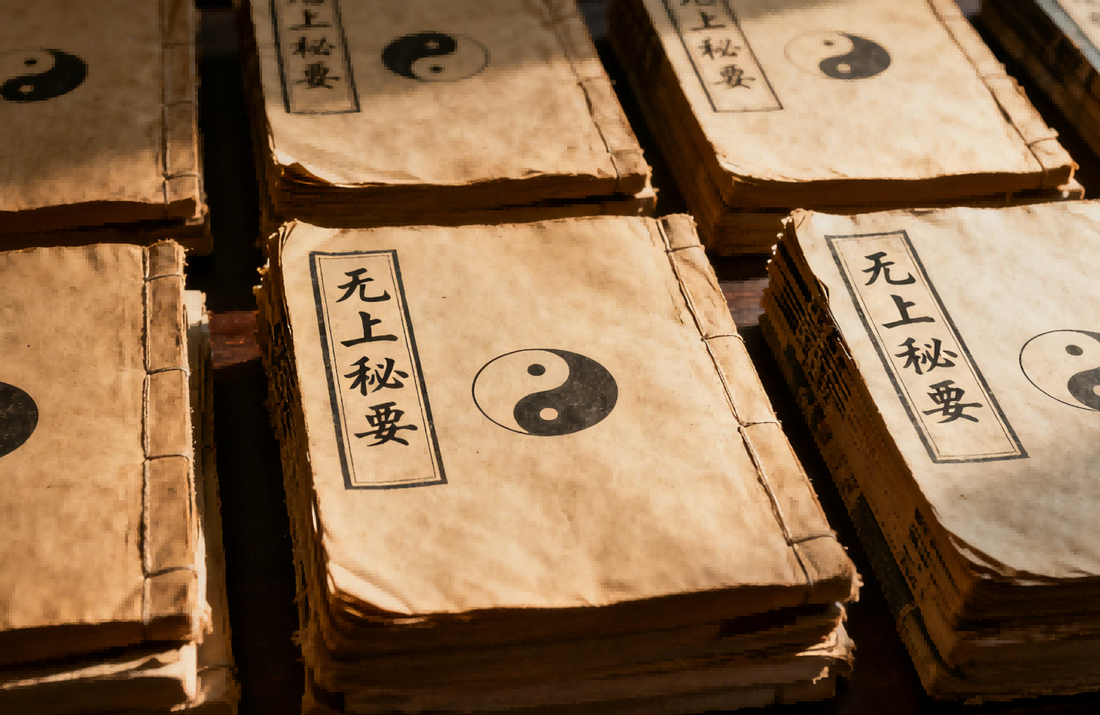 无上秘要
无上秘要
无上秘要
无上秘要